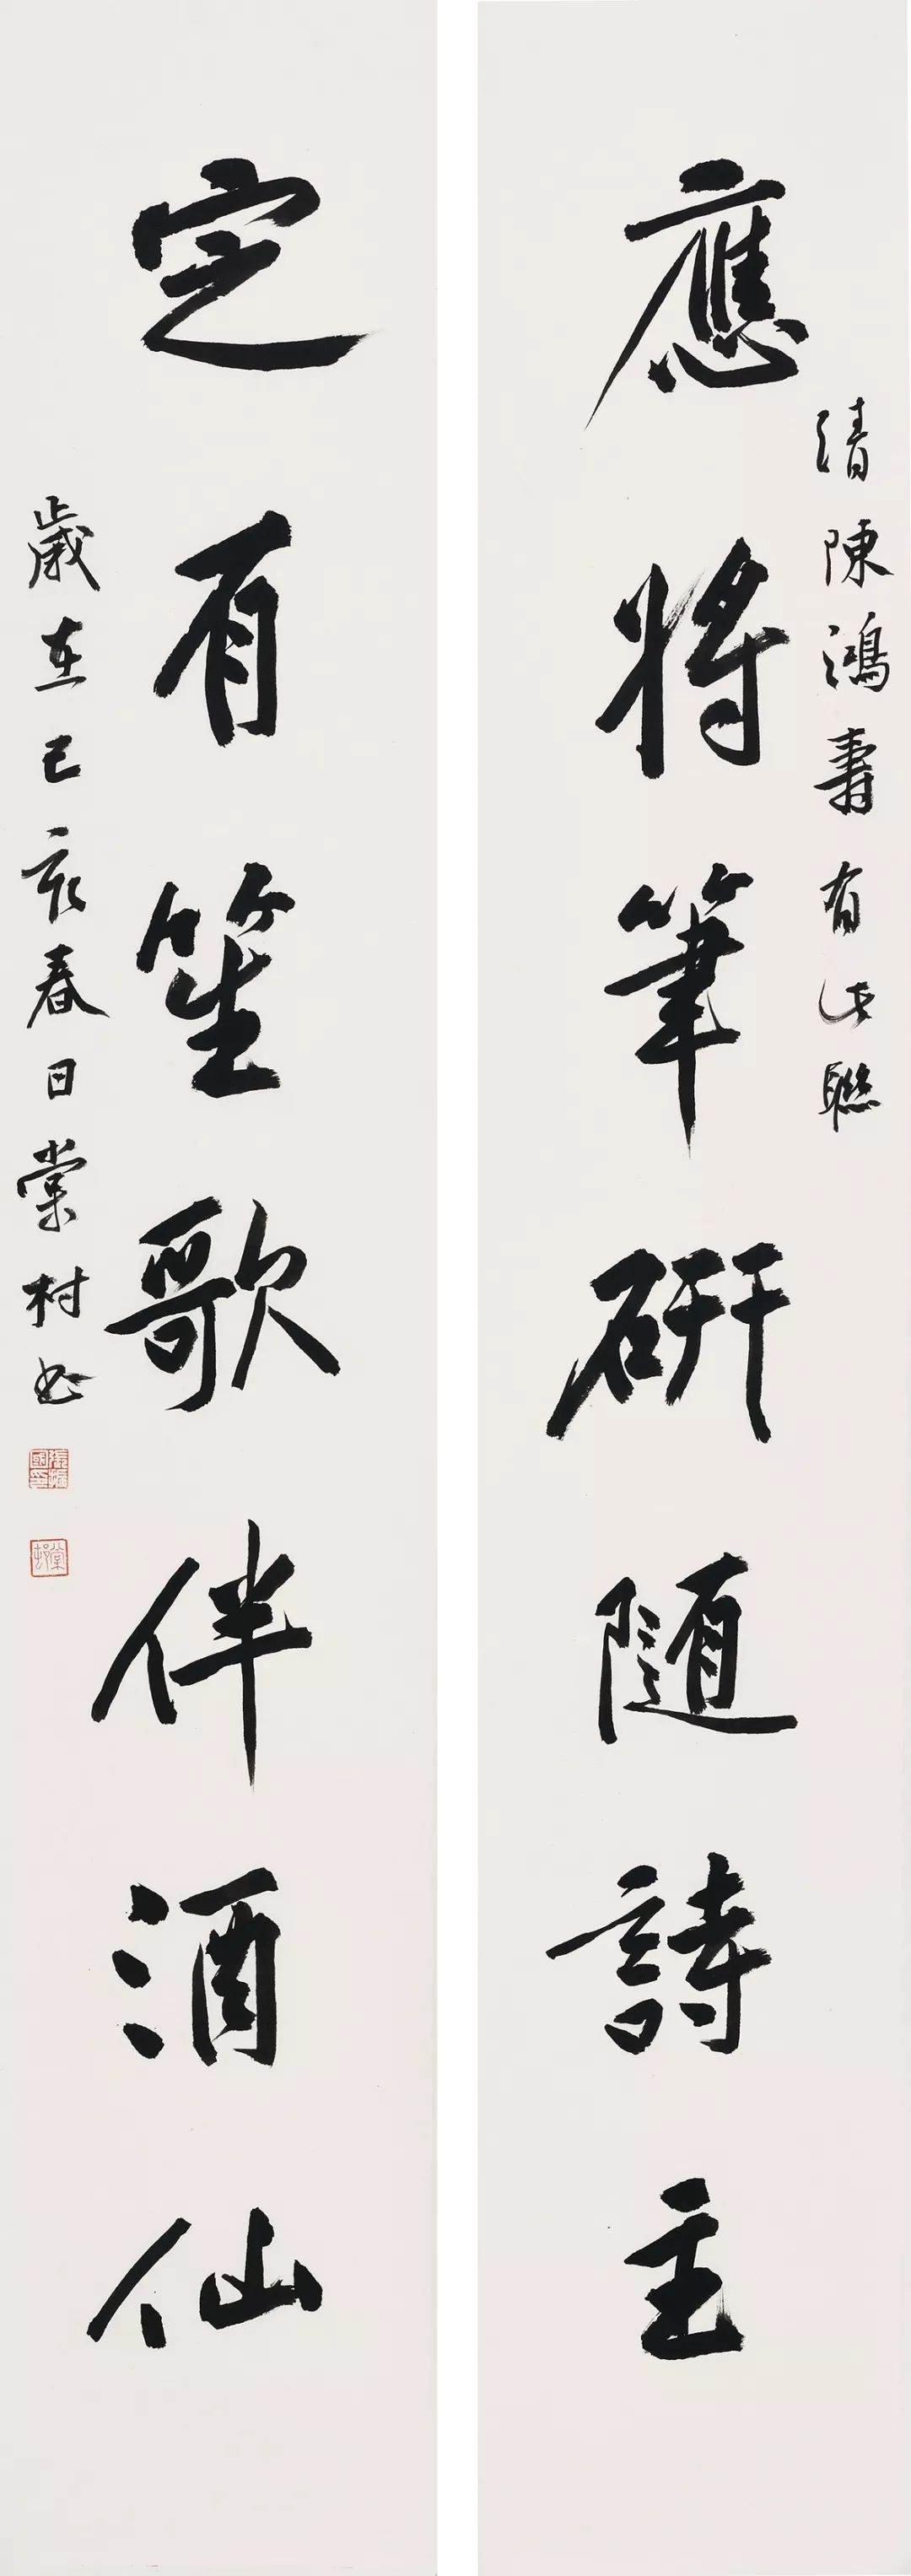 清陳鴻壽有此聯
應將筆研随詩主
定有笙歌伴酒仙
歲在己亥春日棠村书